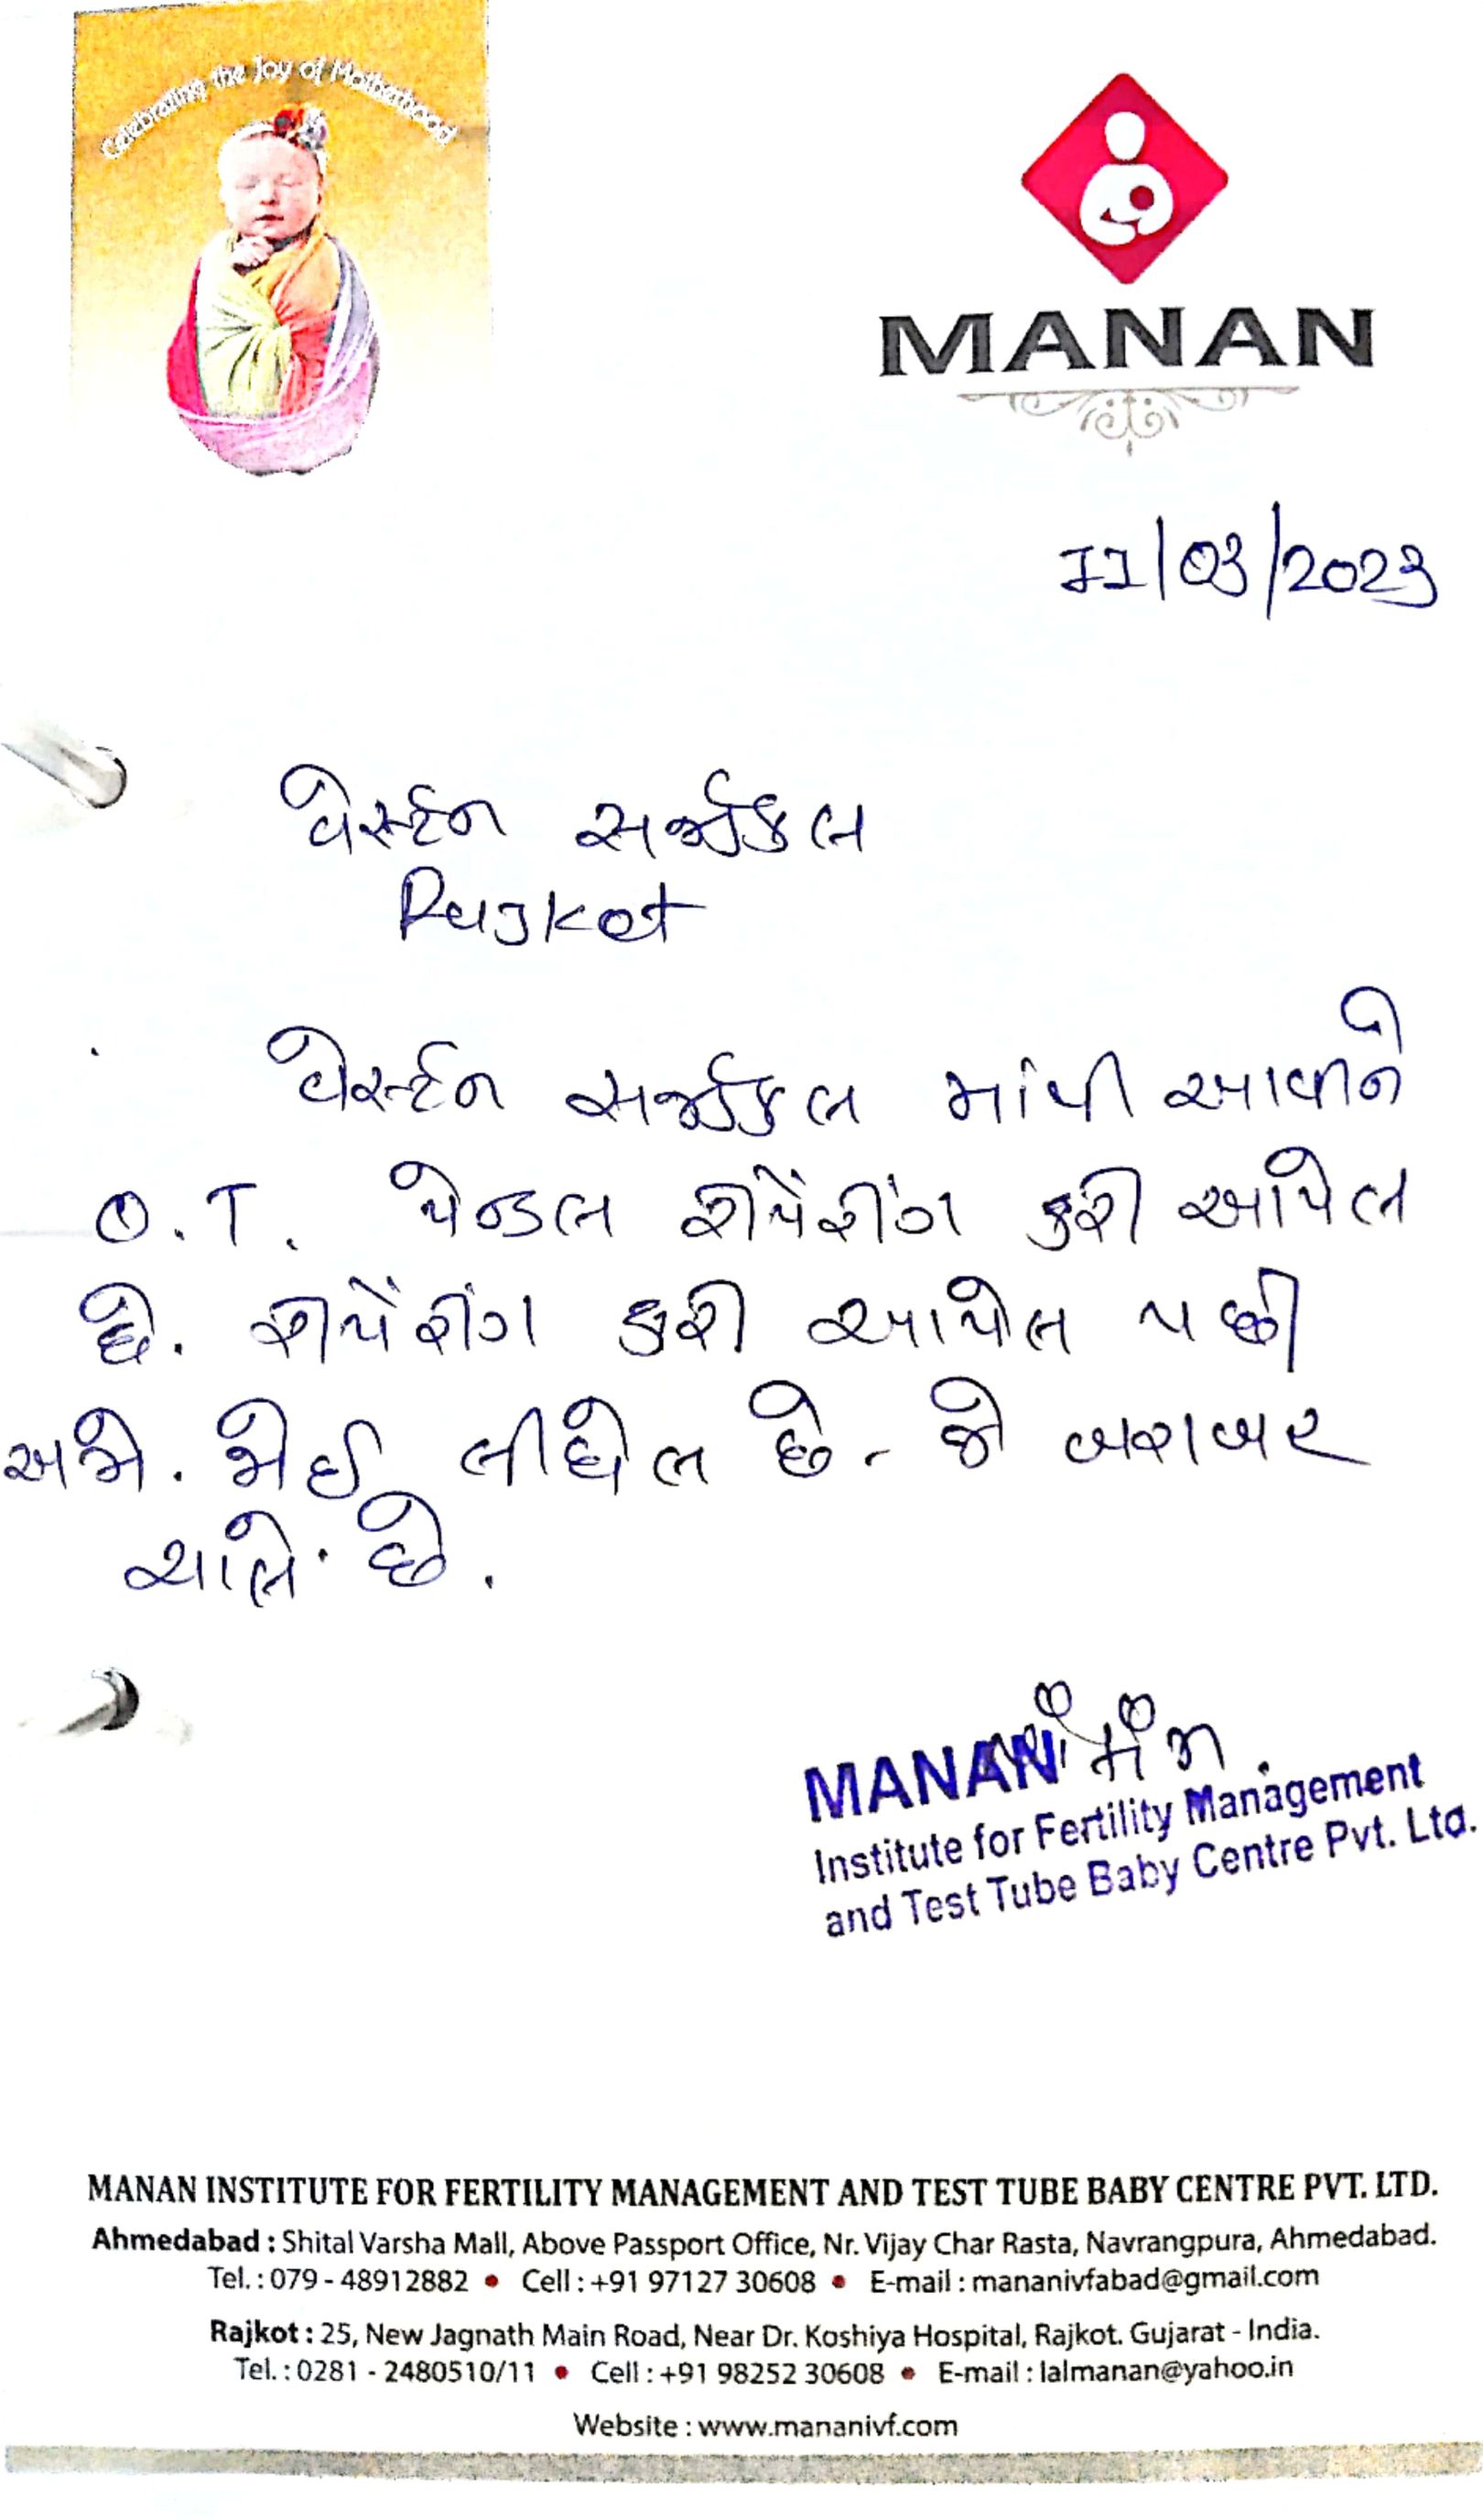 Celebrating the Joy of Motherhood
MANAN
11/03/2023
વેસ્ટન સર્જીકલ
Rajkot
વેસ્ટન સર્જીકલ માંથી આવીને
O.T. પેન્ડલ રીપેરીંગ કરી આપેલ
છે. રીપેરીંગ કરી આપેલ પછી
અમે. જોઈ લીધેલ છે. જે બરાબર
ચાલે છે.
MANAN
Institute for Fertility Management
and Test Tube Baby Centre Pvt. Ltd.
MANAN INSTITUTE FOR FERTILITY MANAGEMENT AND TEST TUBE BABY CENTRE PVT. LTD.
Ahmedabad : Shital Varsha Mall, Above Passport Office, Nr. Vijay Char Rasta, Navrangpura, Ahmedabad.
Tel. : 079 - 48912882 • Cell : +91 97127 30608 • E-mail : mananivfabad@gmail.com
Rajkot : 25, New Jagnath Main Road, Near Dr. Koshiya Hospital, Rajkot. Gujarat - India.
Tel. : 0281 - 2480510/11 • Cell : +91 98252 30608 • E-mail : lalmanan@yahoo.in
Website : www.mananivf.com